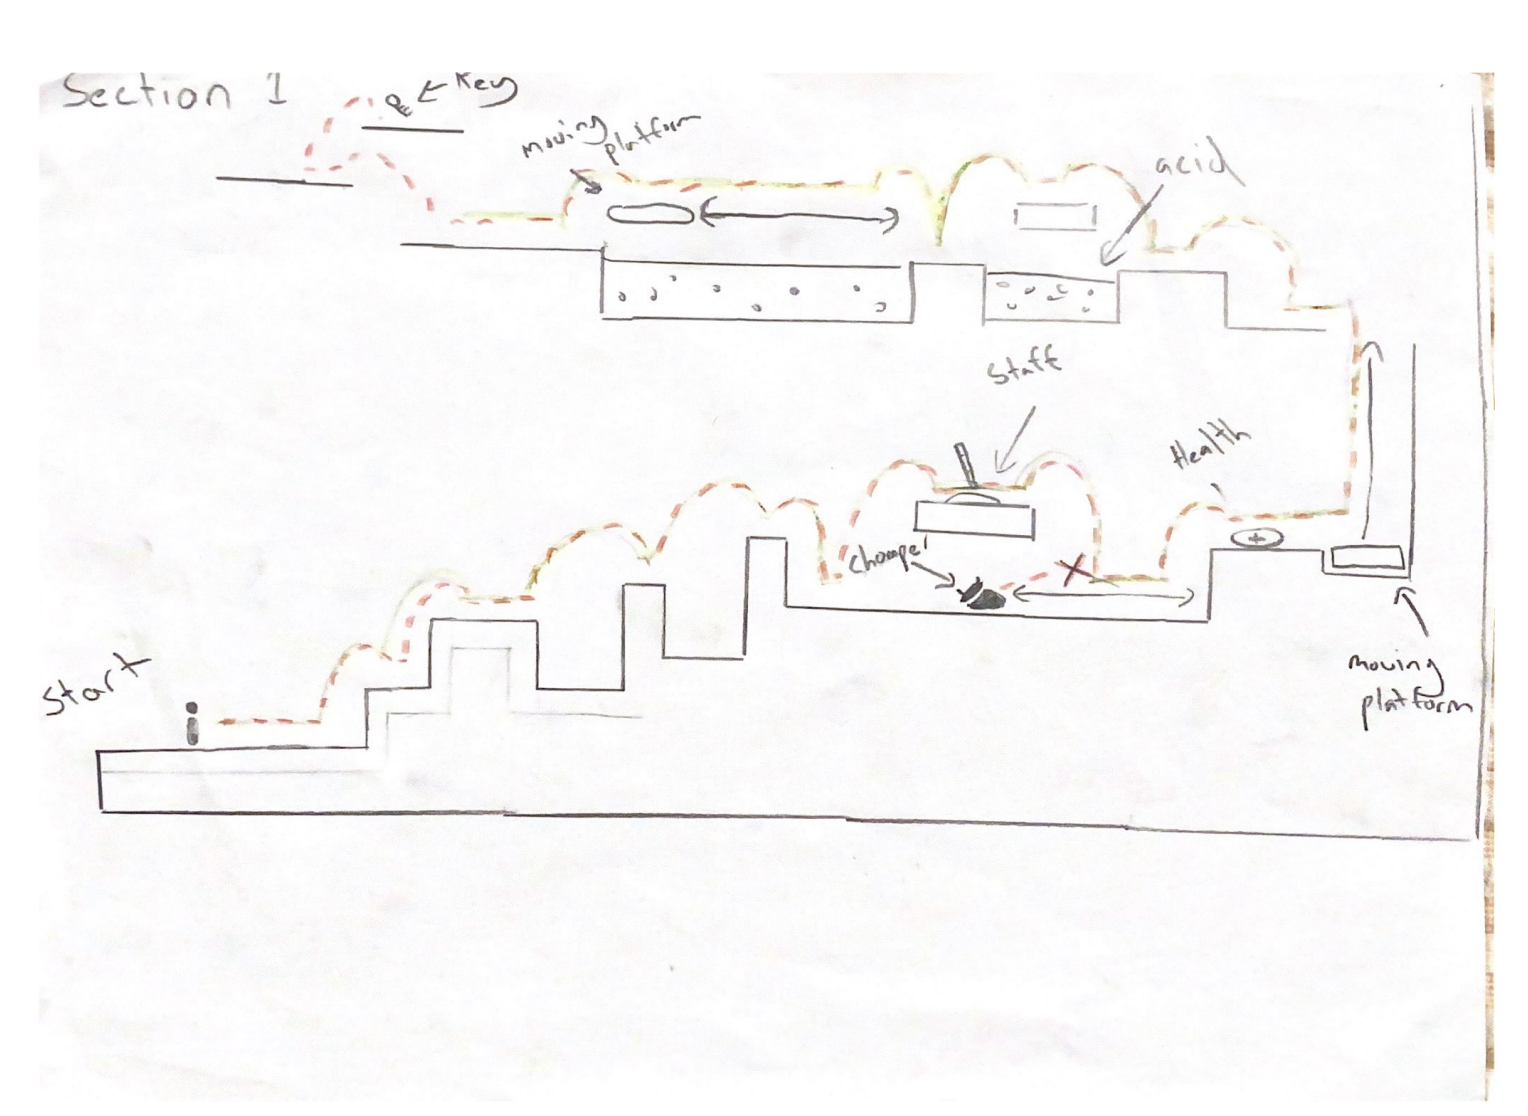 Section 1
← Key
moving
platform
acid
Staff
Health
Chomper
Start
moving
platform